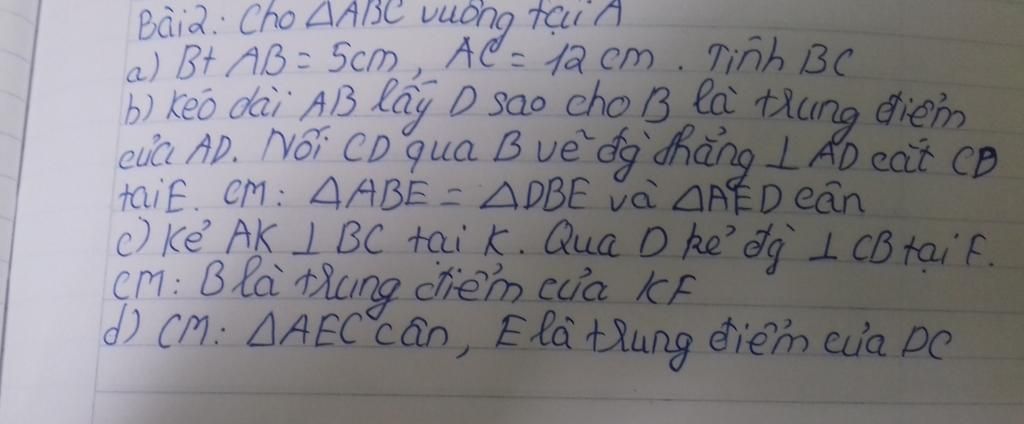 Bài2: Cho △ABC vuông tại A
a) Bt AB = 5cm, AC = 12 cm. Tính BC
b) Kéo dài AB lấy D sao cho B là trung điểm
của AD. Nối CD qua B vẽ đg thẳng ⊥ AD cắt CD
tại E. CM: △ABE = △DBE và △AED cân
c) Kẻ AK ⊥ BC tại K. Qua D kẻ đg ⊥ CB tại F.
CM: B là trung điểm của KF
d) CM: △AEC cân, E là trung điểm của DC